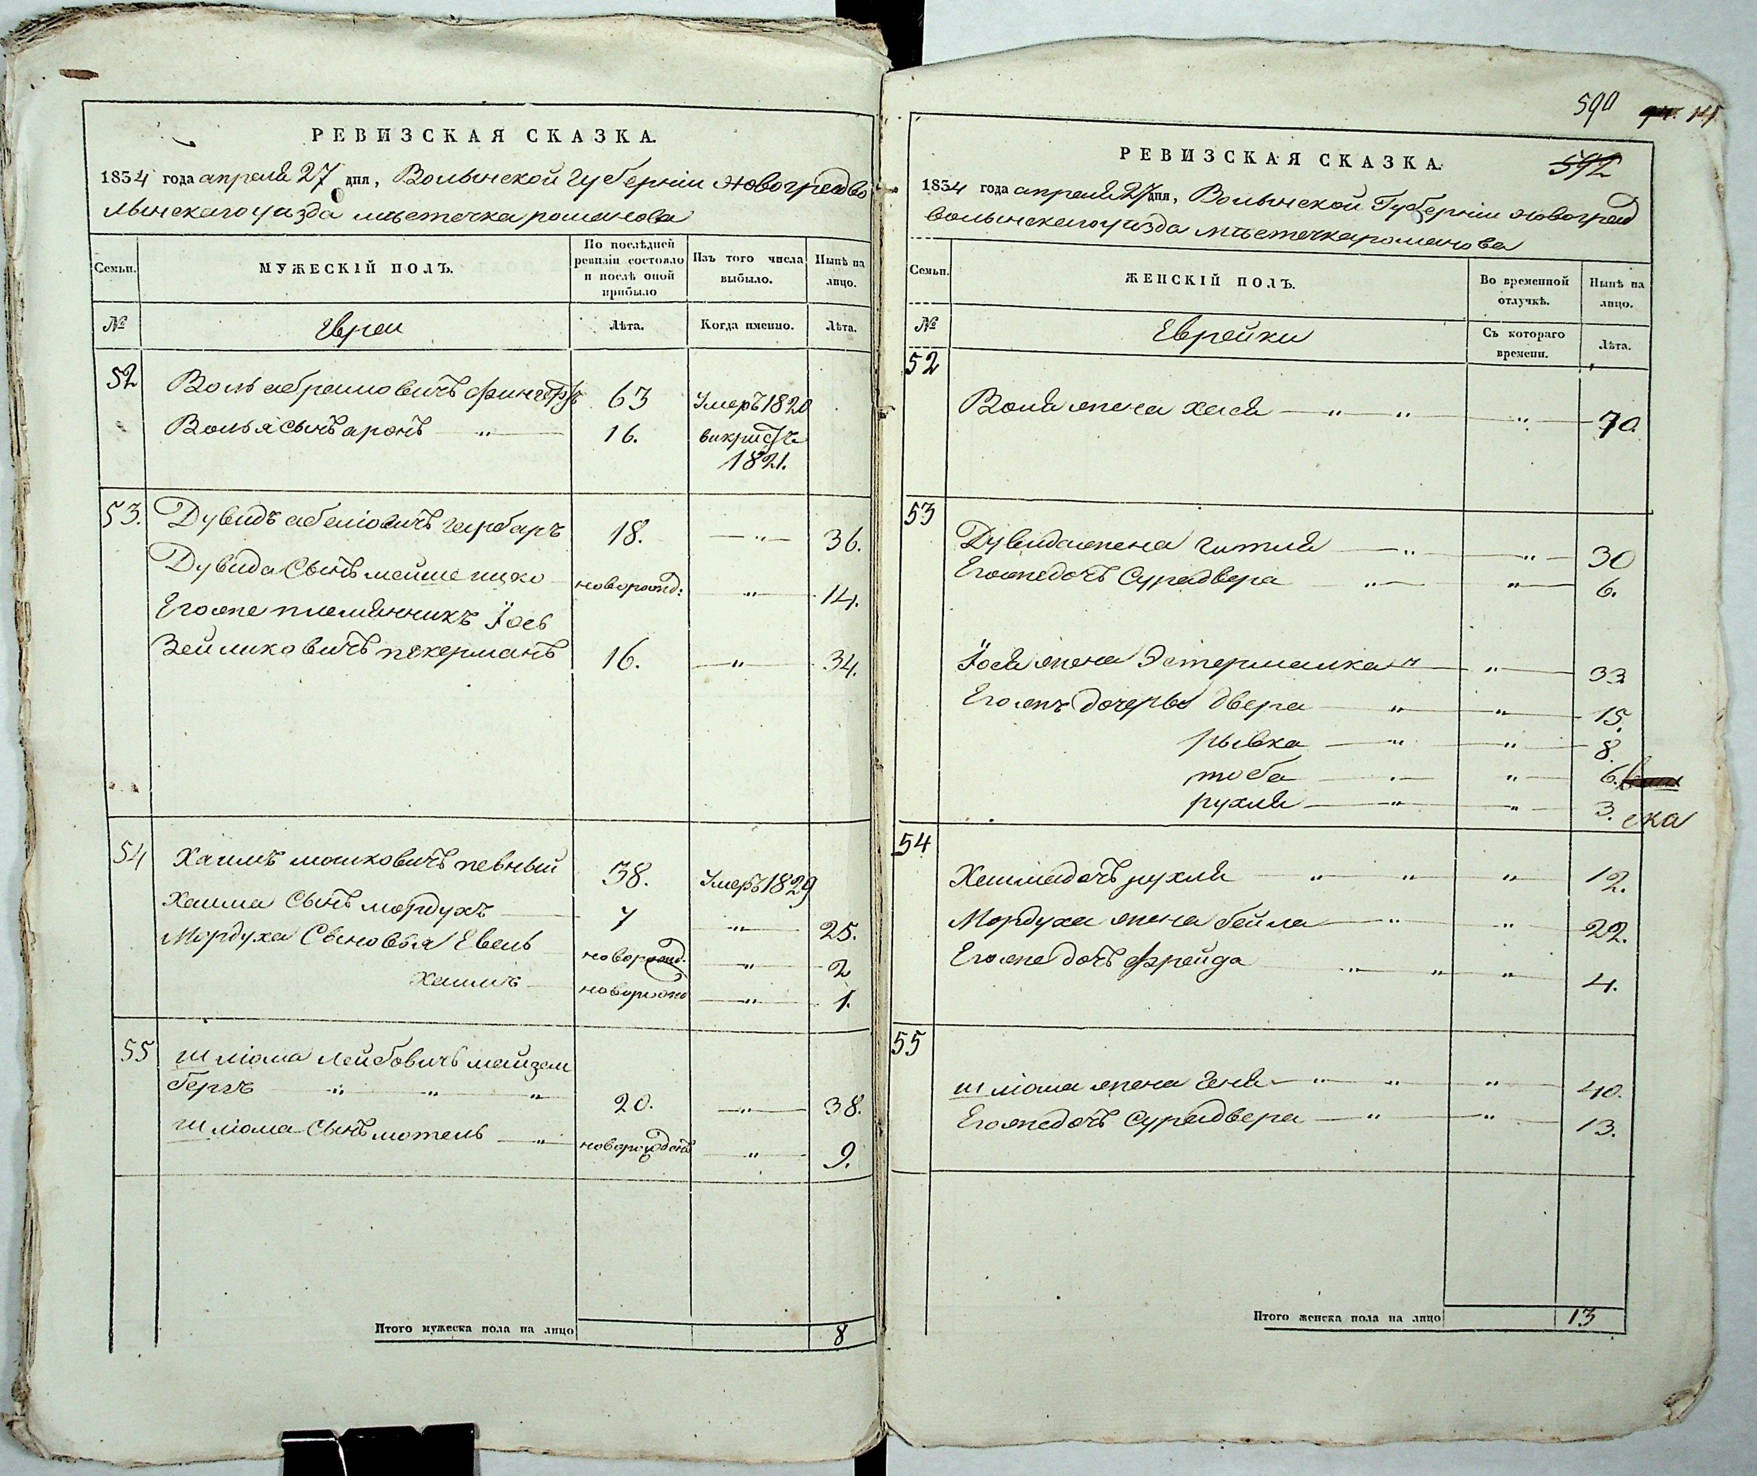 РЕВИЗСКАЯ СКАЗКА.
1834 года апреля 27 дня, Волынской Губерніи Новоградво
лынскаго уезда местечка романова
Семьи.
МУЖЕСКІЙ ПОЛЪ.
По послѣдней ревизіи состояло и послѣ оной прибыло
Изъ того числа выбыло.
Нынѣ на лицо.
№
Евреи
Лѣта.
Когда именно.
Лѣта.
52 Воль абрамовичъ 63 Умеръ 1820
Волья сынъ аронъ — " — 16. 
1821.
53. Дувидъ абеліовичъ гарбаръ 18. — " — 36.
Дувида Сынъ мейше ицко новорожд. — " — 14.
Егоже племянникъ Іось
Зейликовичъ пекерманъ 16. — " — 34.
54 Хаимъ мошковичъ певный 38. Умеръ 1829
Хаима Сынъ мордухъ — 7 — " — 25.
Мордуха Сыновья Евель новорожд. — " — 2
Хаимъ — новорожд — " — 1.
55 шліома лейбовичъ майзем
бергъ — " — " — " 20. — " — 38.
шліома Сынъ мотель — " новорожденъ — " — 9.
Итого мужеска пола на лицо 8
590
14
592
РЕВИЗСКАЯ СКАЗКА.
1834 года апреля 27 дня, Волынской Губерніи Новоград
волынскаго уезда местечка романова
Семьи.
ЖЕНСКІЙ ПОЛЪ.
Во временной отлучкѣ.
Нынѣ на лицо.
№
Еврейки
Съ котораго времени.
Лѣта.
52
Воля жена хася — " — " — " — 70.
53
Дувида жена гитля — " — " — 30
Егоже дочъ Сурадвера " — " — 6.
Іося жена Эстермалка — " — " — 33
Егожъ дочеры двера — " — " — 15.
рывка — " — " — 8.
тоба — " — " — 6.
рухля — " — " — 3. ека
54
Хаима дочъ рухля — " — " — " — 12.
Мордуха жена бейла — " — " — 22.
Егоже дочъ фрейда " — " — " — 4.
55
шліома жена геня — " — " — " — 40.
Егоже дочъ Сурадвера — " — " — 13.
Итого женска пола на лицо 13